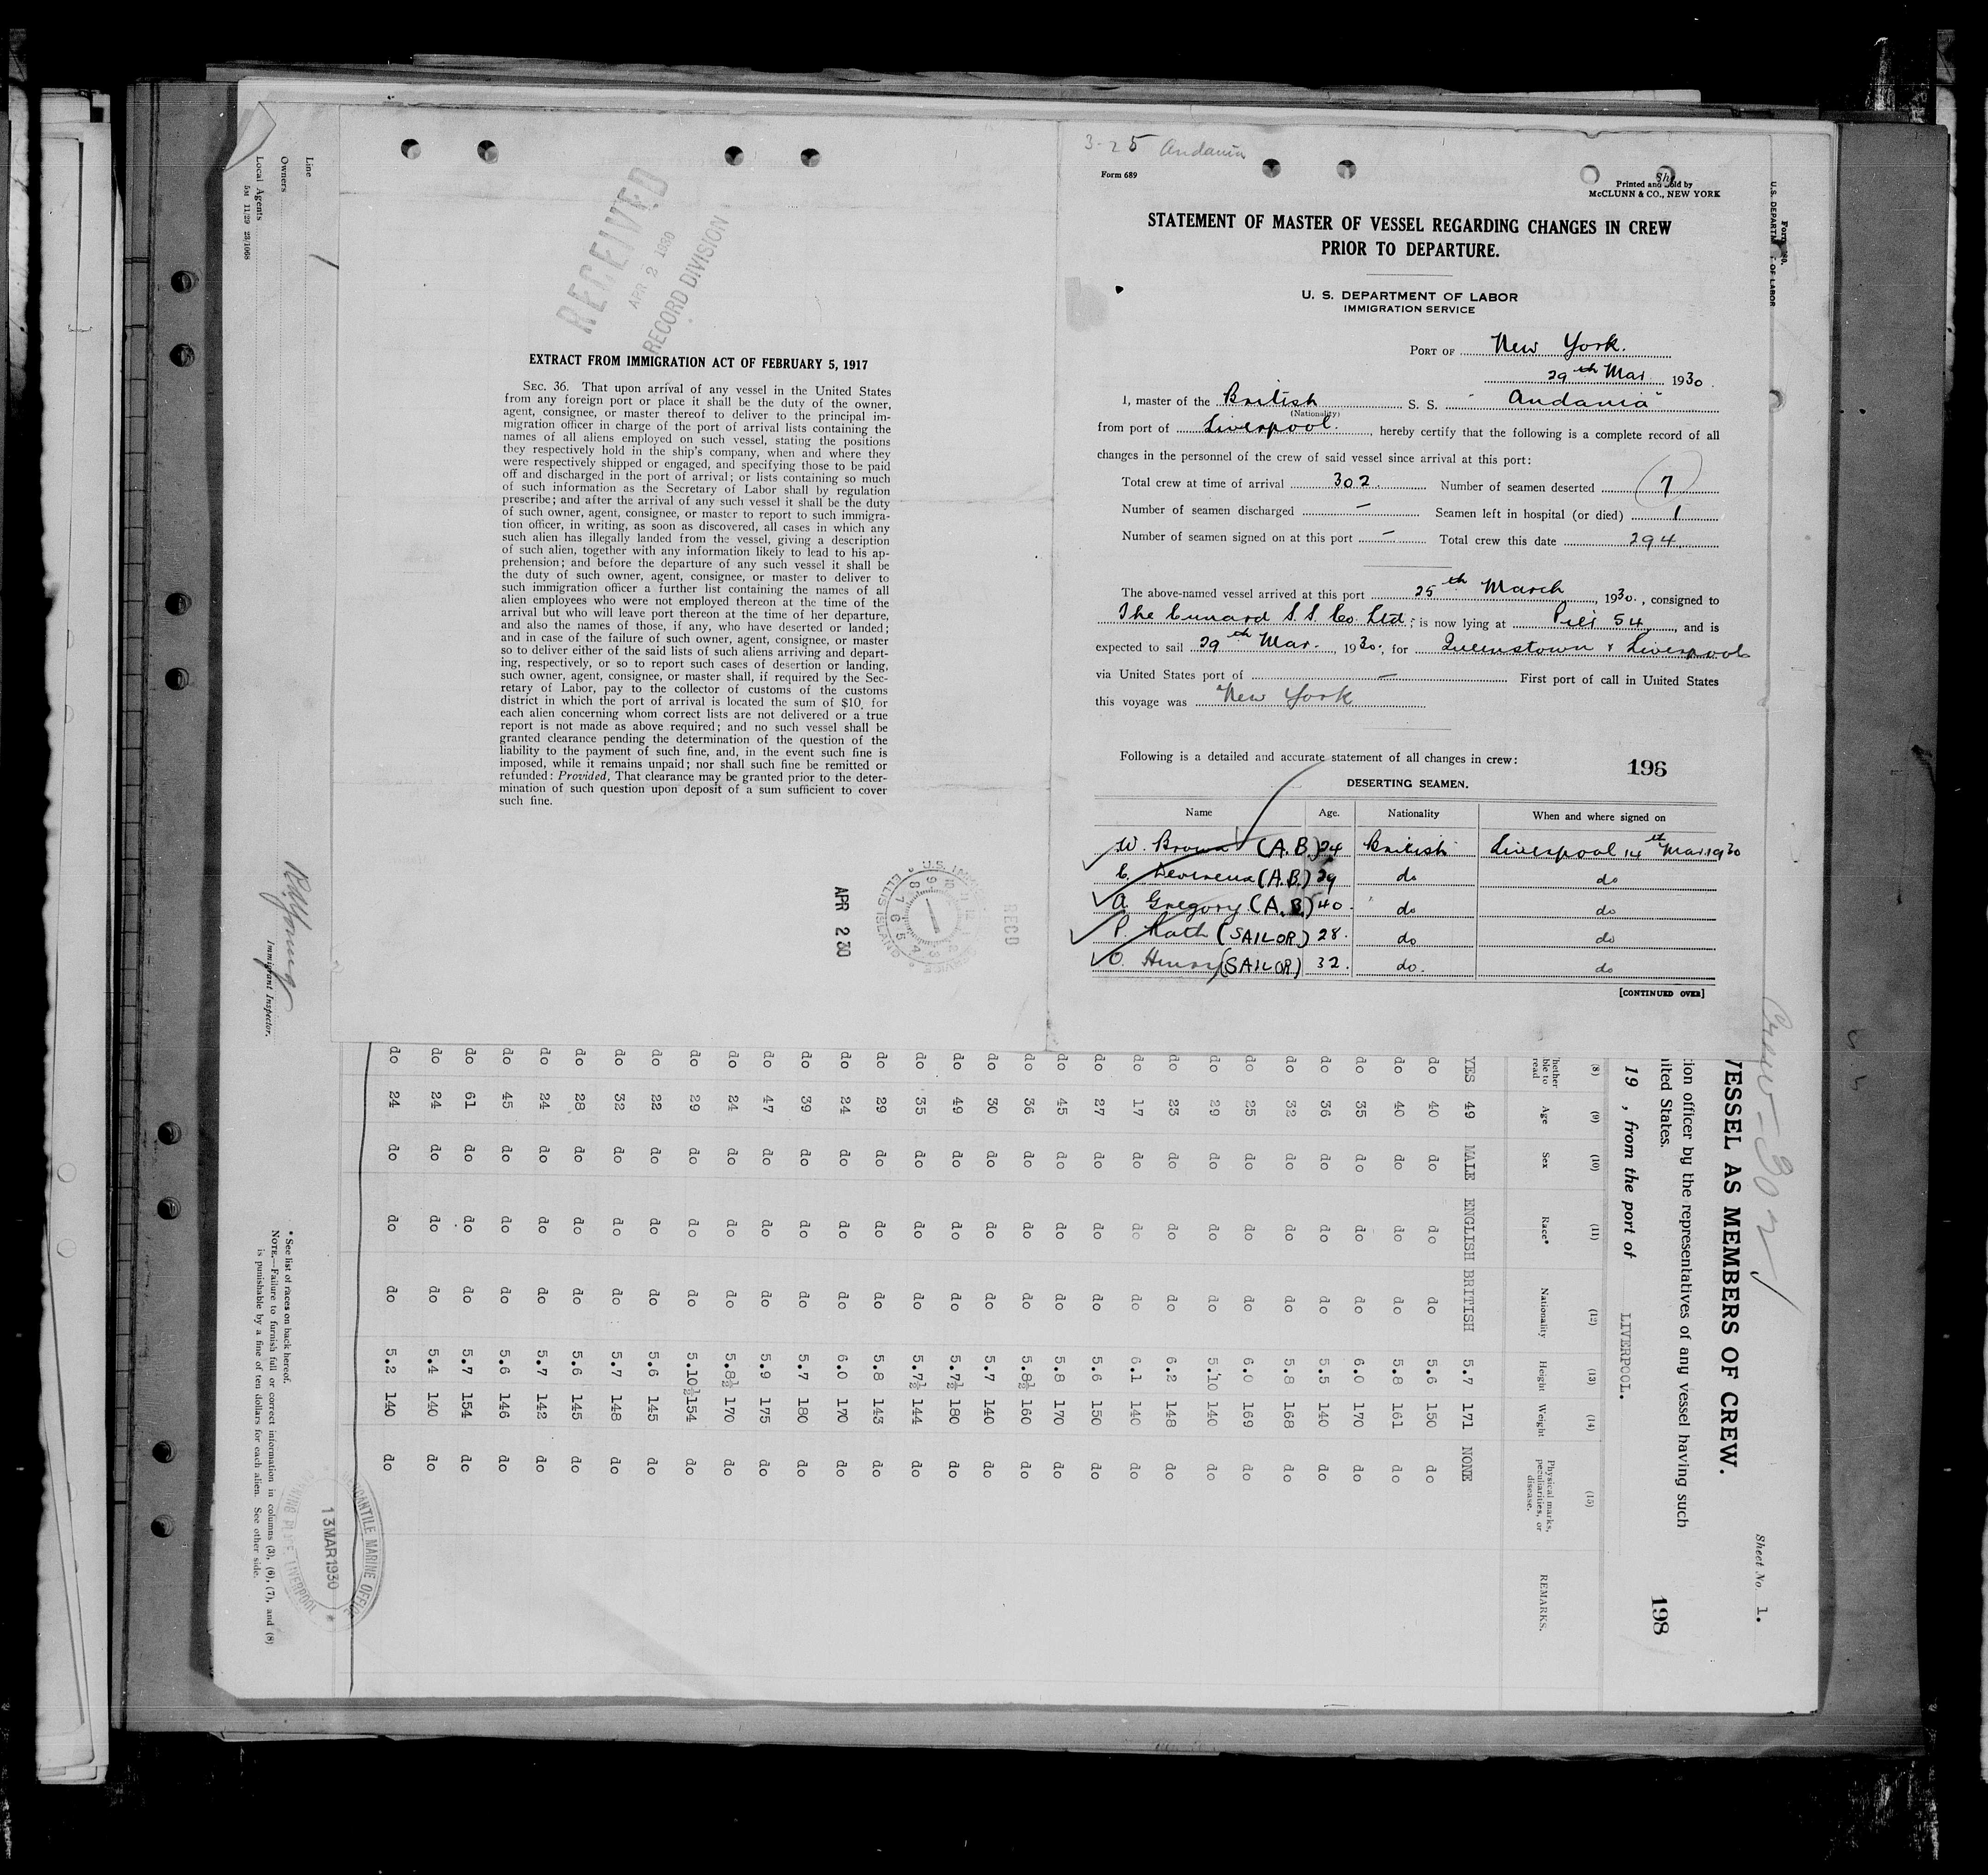 3-25 Andania
Form 689
Printed and Sold by
McCLUNN & CO., NEW YORK
STATEMENT OF MASTER OF VESSEL REGARDING CHANGES IN CREW
PRIOR TO DEPARTURE.
U. S. DEPARTMENT OF LABOR
IMMIGRATION SERVICE
PORT OF New York.
29th Mar. 1930.
I, master of the British S. S. "Andania"
(Nationality)
from port of Liverpool., hereby certify that the following is a complete record of all
changes in the personnel of the crew of said vessel since arrival at this port:
Total crew at time of arrival 302. Number of seamen deserted 7
Number of seamen discharged — Seamen left in hospital (or died) 1
Number of seamen signed on at this port — Total crew this date 294
The above-named vessel arrived at this port 25th March, 1930., consigned to
The Cunard S.S. Co. Ltd; is now lying at Pier 54, and is
expected to sail 29th Mar. 1930., for Queenstown & Liverpool
via United States port of — First port of call in United States
this voyage was New York
Following is a detailed and accurate statement of all changes in crew:
196
DESERTING SEAMEN.
Name Age. Nationality When and where signed on
W. Brown (A.B.) 24 British Liverpool 14th Mar. 1930
C. (A.B.) 29 do do
A. Gregory (A.B.) 40. do do
P. (SAILOR) 28. do do
O. Henry (SAILOR) 32. do. do
[CONTINUED OVER]
RECEIVED
APR 2 1930
RECORD DIVISION
EXTRACT FROM IMMIGRATION ACT OF FEBRUARY 5, 1917
SEC. 36. That upon arrival of any vessel in the United States
from any foreign port or place it shall be the duty of the owner,
agent, consignee, or master thereof to deliver to the principal im-
migration officer in charge of the port of arrival lists containing the
names of all aliens employed on such vessel, stating the positions
they respectively hold in the ship's company, when and where they
were respectively shipped or engaged, and specifying those to be paid
off and discharged in the port of arrival; or lists containing so much
of such information as the Secretary of Labor shall by regulation
prescribe; and after the arrival of any such vessel it shall be the duty
of such owner, agent, consignee, or master to report to such immigra-
tion officer, in writing, as soon as discovered, all cases in which any
such alien has illegally landed from the vessel, giving a description
of such alien, together with any information likely to lead to his ap-
prehension; and before the departure of any such vessel it shall be
the duty of such owner, agent, consignee, or master to deliver to
such immigration officer a further list containing the names of all
alien employees who were not employed thereon at the time of the
arrival but who will leave port thereon at the time of her departure,
and also the names of those, if any, who have deserted or landed;
and in case of the failure of such owner, agent, consignee, or master
so to deliver either of the said lists of such aliens arriving and depart-
ing, respectively, or so to report such cases of desertion or landing,
such owner, agent, consignee, or master shall, if required by the Sec-
retary of Labor, pay to the collector of customs of the customs
district in which the port of arrival is located the sum of $10 for
each alien concerning whom correct lists are not delivered or a true
report is not made as above required; and no such vessel shall be
granted clearance pending the determination of the question of the
liability to the payment of such fine, and, in the event such fine is
imposed, while it remains unpaid; nor shall such fine be remitted or
refunded: Provided, That clearance may be granted prior to the deter-
mination of such question upon deposit of a sum sufficient to cover
such fine.
APR 2 30
ELLIS ISLAND
RECD
U.S. DEPARTM OF LABOR
Crew - 302
Sheet No. 1.
VESSEL AS MEMBERS OF CREW.
tion officer by the representatives of any vessel having such
nited States.
198
19 , from the port of LIVERPOOL.
(8) (9) (10) (11) (12) (13) (14) (15)
hether ble to read Age Sex Race* Nationality Height Weight Physical marks, peculiarities, or disease. REMARKS.
YES 49 MALE ENGLISH BRITISH 5.7 171 NONE
do 40 do do do 5.6 150 do
do 40 do do do 5.8 161 do
do 35 do do do 6.0 170 do
do 36 do do do 5.5 140 do
do 32 do do do 5.8 168 do
do 25 do do do 6.0 169 do
do 29 do do do 5.10 140 do
do 23 do do do 6.2 148 do
do 17 do do do 6.1 140 do
do 27 do do do 5.6 150 do
do 45 do do do 5.8 170 do
do 36 do do do 5.8½ 160 do
do 30 do do do 5.7 140 do
do 49 do do do 5.7½ 180 do
do 35 do do do 5.7½ 144 do
do 29 do do do 5.8 143 do
do 24 do do do 6.0 170 do
do 39 do do do 5.7 180 do
do 47 do do do 5.9 175 do
do 24 do do do 5.8½ 170 do
do 29 do do do 5.10½ 154 do
do 22 do do do 5.6 145 do
do 32 do do do 5.7 148 do
do 28 do do do 5.6 145 do
do 24 do do do 5.7 142 do
do 45 do do do 5.6 146 do
do 61 do do do 5.7 154 do
do 24 do do do 5.4 140 do
do 24 do do do 5.2 140 do
MERCANTILE MARINE OFFICE
13 MAR 1930
LIVERPOOL
Line
Owners
Local Agents
5M 11/29 23/1068
Immigrant Inspector.
* See list of races on back hereof.
NOTE.—Failure to furnish full or correct information in columns (3), (6), (7), and (8)
is punishable by a fine of ten dollars for each alien. See other side.